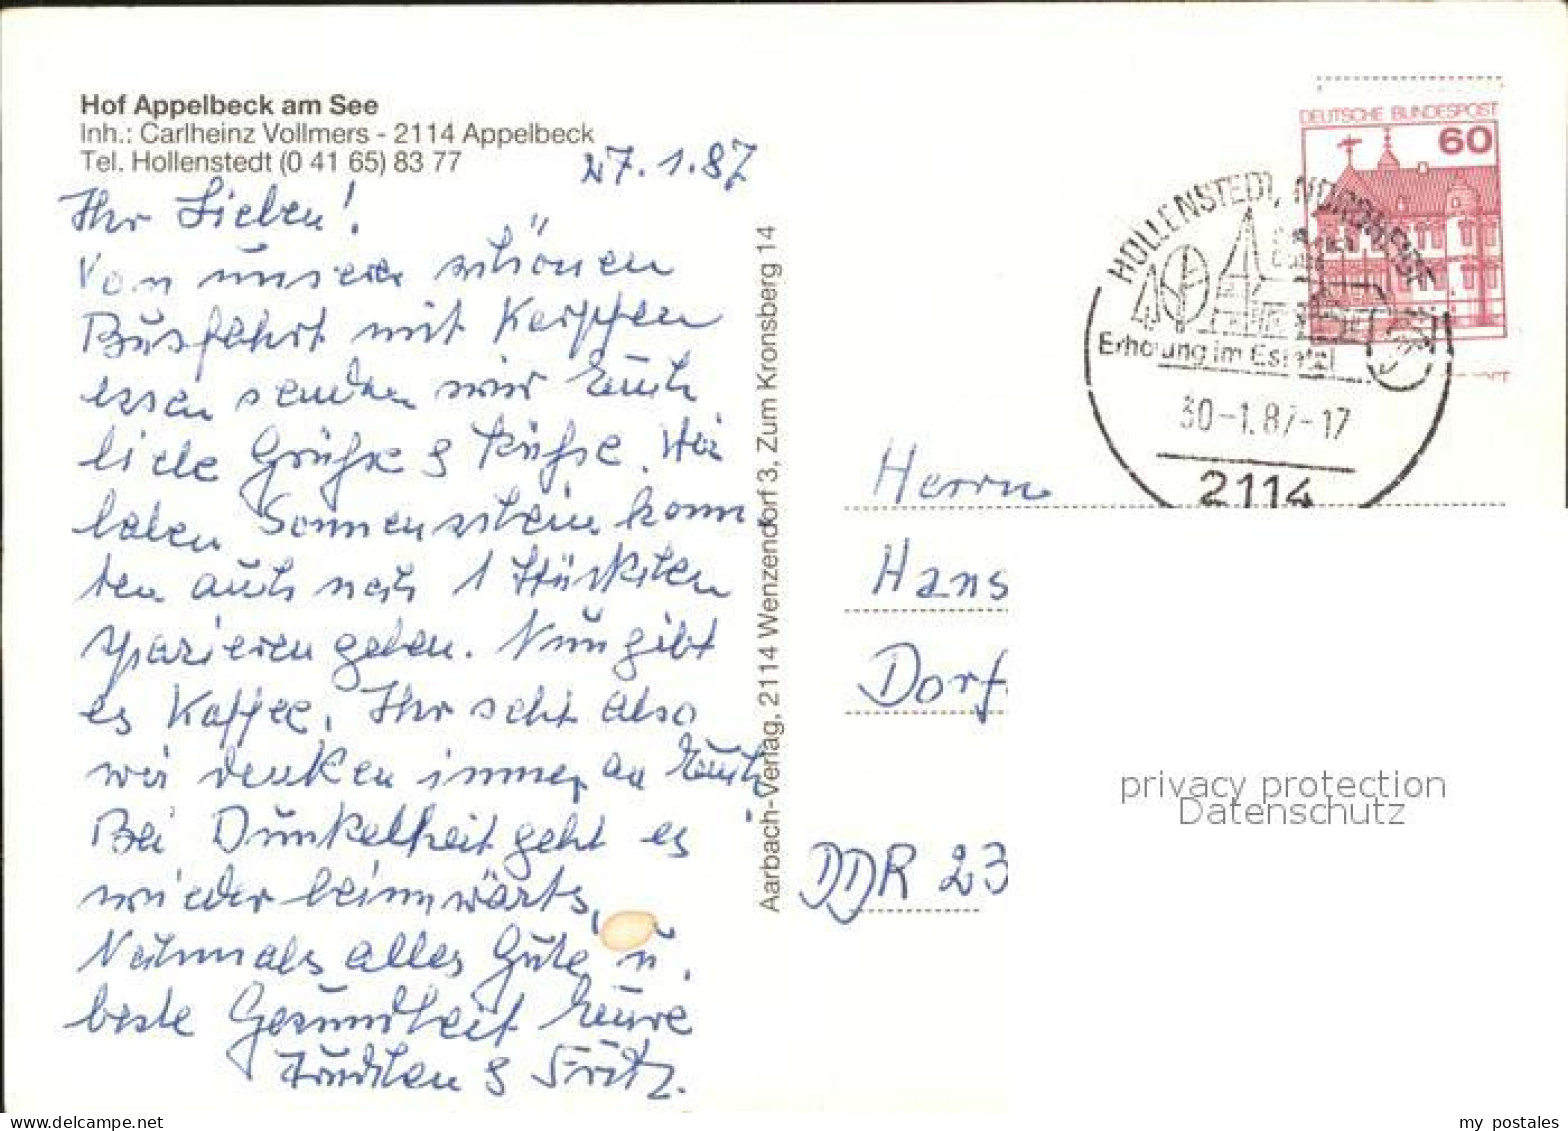 Hof Appelbeck am See
Inh.: Carlheinz Vollmers - 2114 Appelbeck
Tel. Hollenstedt (0 41 65) 83 77
27.1.87
Ihr Lieben!
Von unserer schönen
Busfahrt mit Karpfen
essen senden wir Euch
liebe Grüße & Küße. Wir
haben Sonnenschein konn
ten auch noch 1 Stückchen
spazieren gehen. Nun gibt
es Kaffee. Ihr seht also
wir denken immer an Euch
Bei Dunkelheit geht es
wieder heimwärts,
Nochmals alles Gute u.
beste Gesundheit Eure
& Fritz.
Aarbach-Verlag, 2114 Wenzendorf 3, Zum Kronsberg 14
DEUTSCHE BUNDESPOST
60
HOLLENSTEDT, NORDHEIDE
Erholung im Estetal
30-1.87-17
2114
Herrn
Hans
Dorf
DDR 23
privacy protection
Datenschutz
my postales